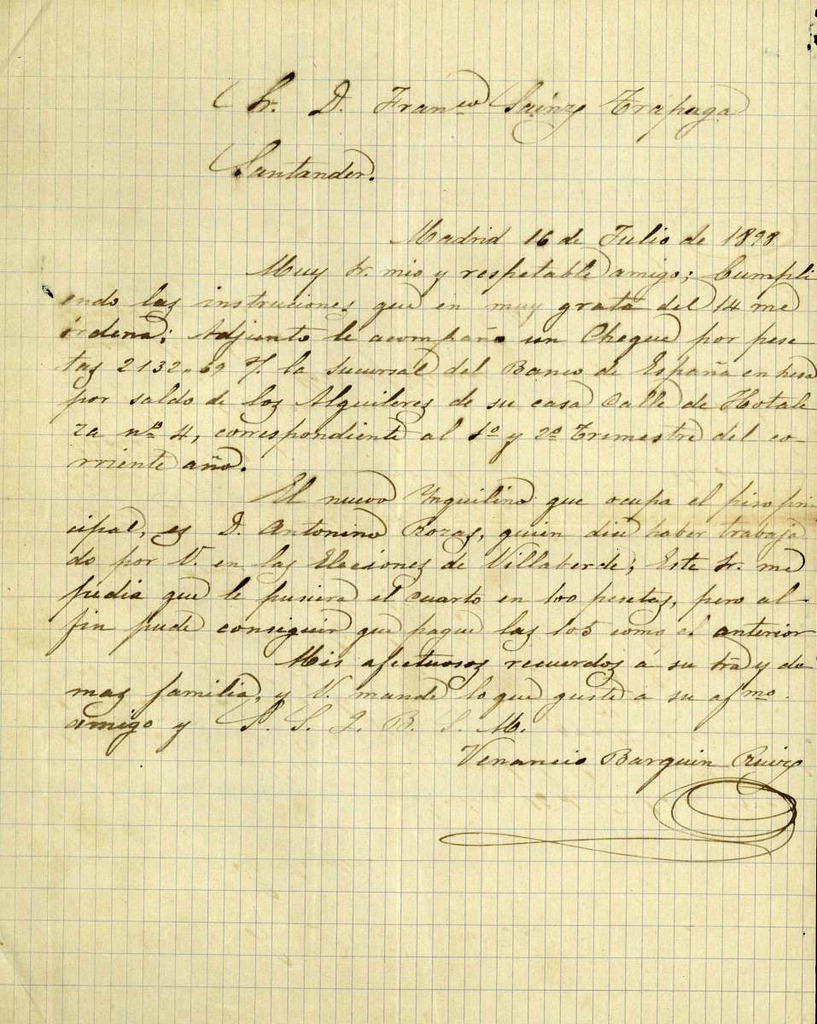 Sr. D. Franco Sainz Trápaga
Santander.
Madrid 16 de Julio de 1898
Muy Sr. mio y respetable amigo; Cumpli
endo las instruciones que en muy grata del 14 me
ordena; Adjunto le acompaño un Cheque por pese
tas 2132.69 la Sucursal del Banco de España en
por saldo de los Alquileres de su casa Calle de Hotale
za nº 4, correspondiente al 1º y 2º Trimestre del co-
rriente año.
El nuevo Ynquilino que ocupa el piso prin
cipal, es D. Antonino Rozas, quien dice haber trabaja
do por V. en las Eleciones de Villaberde; Este Sr. me
pedia que le pusiera el cuarto en 100 pesetas, pero al
fin pude conseguir que pague las 105 como el anterior
Mis afectuosos recuerdos á su Srã y de
mas familia, y V. mande lo que guste a su afmo.
amigo y S. S. Q. B. S. M.
Venancio Barquin Ruiz